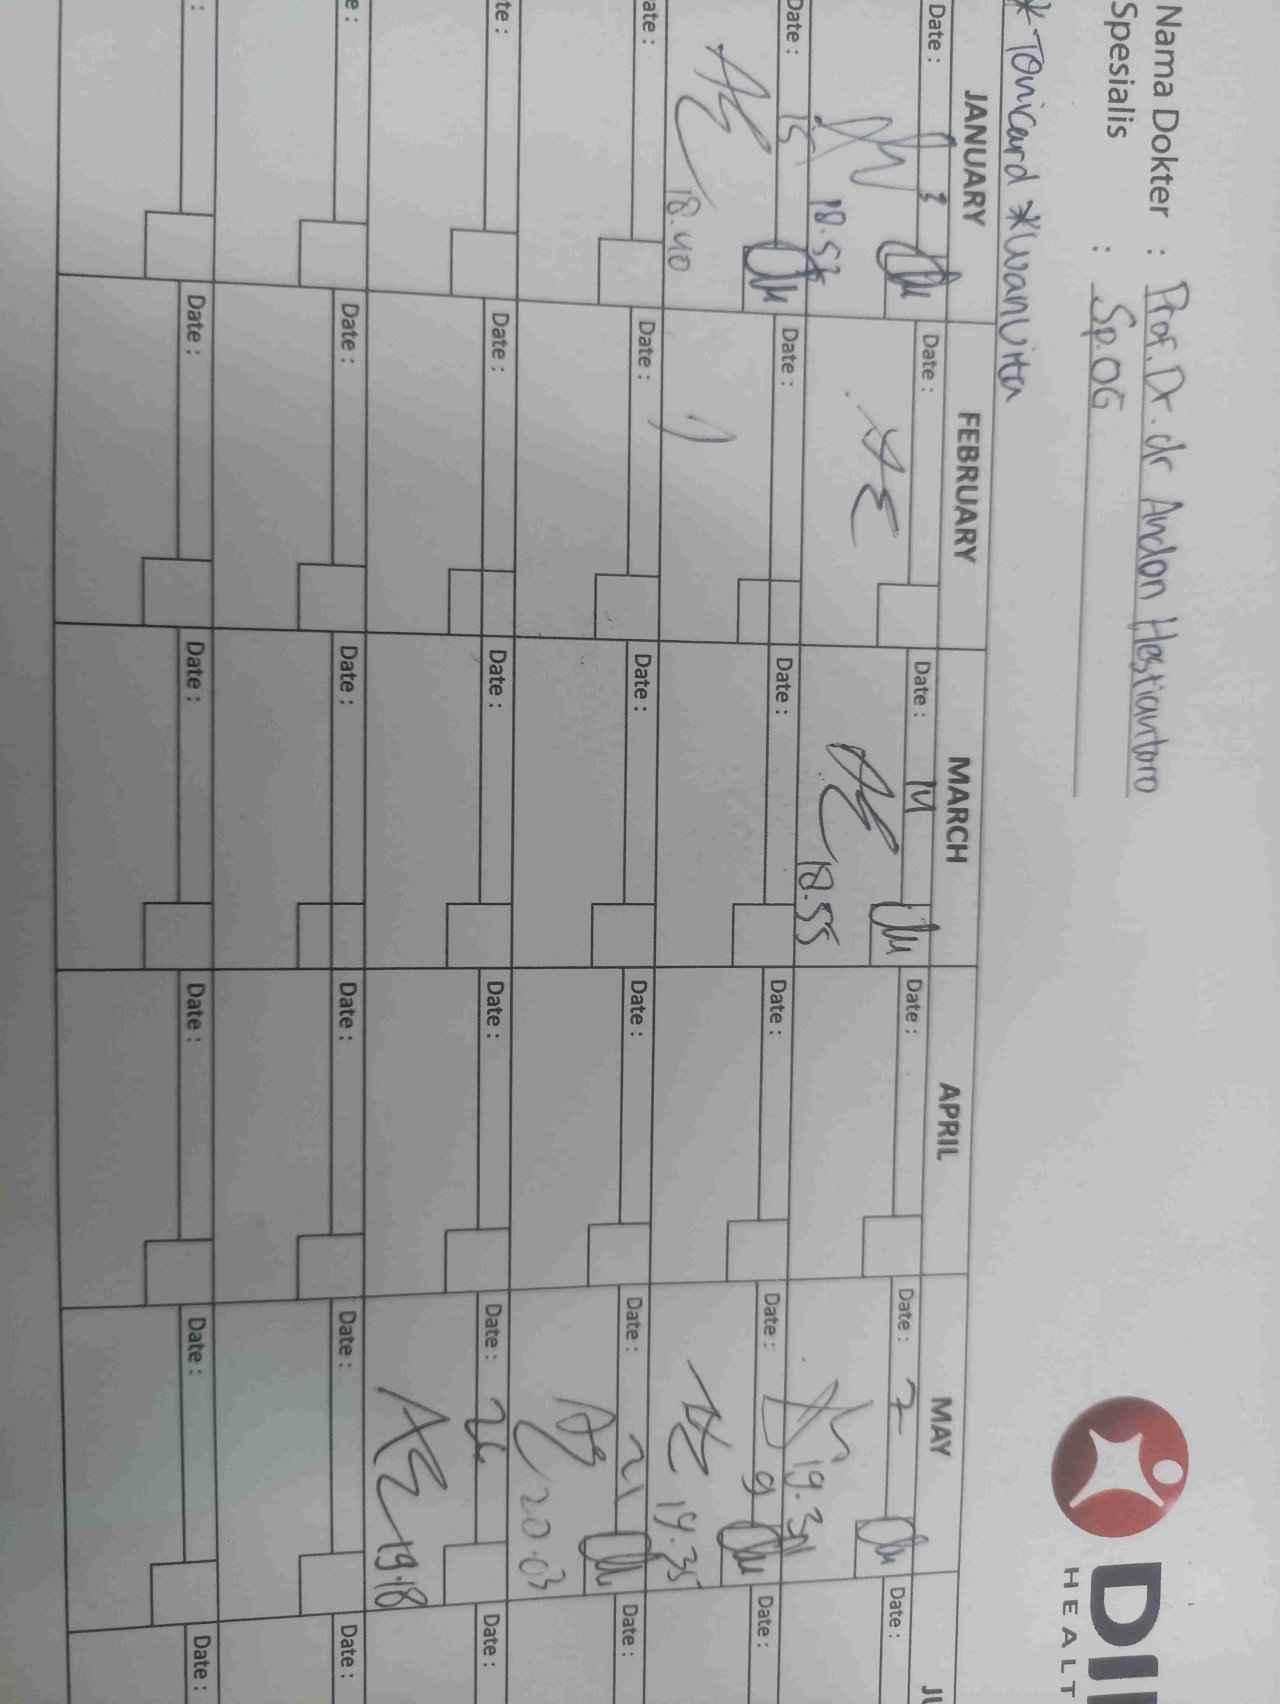 Nama Dokter : Prof. Dr. dr Andon Hestiantoro
Spesialis : Sp.OG
HEALT
* Tonicard *Wanvita
JANUARY FEBRUARY MARCH APRIL MAY
Date : 3 Date : Date : 14 Date : Date : 2 Date :
18.55 19.31
Date : 15 Date : Date : Date : Date : 9 Date :
18.40 19.35
ate : Date : Date : Date : Date : 21 Date :
20.03
te : Date : Date : Date : Date : 26 Date :
19.18
e : Date : Date : Date : Date : Date :
: Date : Date : Date : Date : Date :